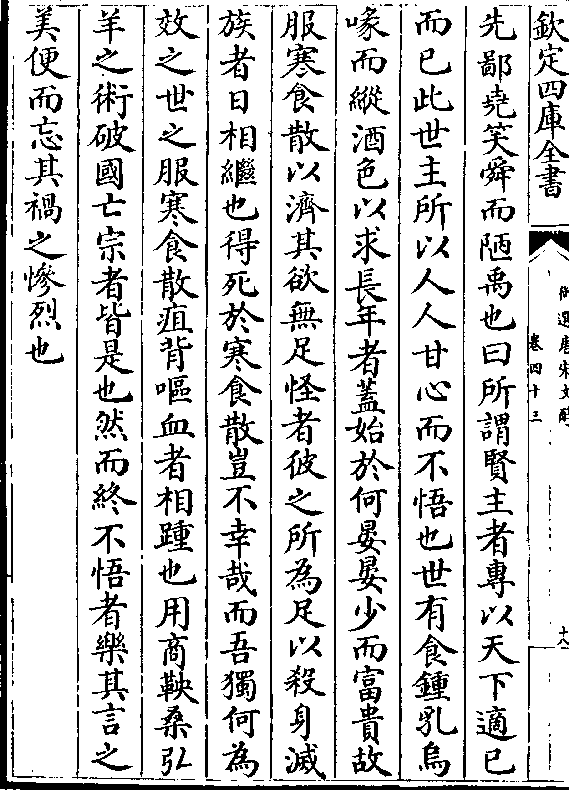 欽定四庫全書
御選唐宋文醇
卷四十三
先鄙堯笑舜而陋禹也曰所謂賢主者專以天下適已
而已此世主所以人人甘心而不悟也世有食鍾乳烏
喙而縱酒色以求長年者蓋始於何晏晏少而富貴故
服寒食散以濟其欲無足怪者彼之所為足以殺身滅
族者日相繼也得死於寒食散豈不幸哉而吾獨何為
效之世之服寒食散疽背嘔血者相踵也用商鞅桑弘
羊之術破國亡宗者皆是也然而終不悟者樂其言之
美便而忘其禍之慘烈也